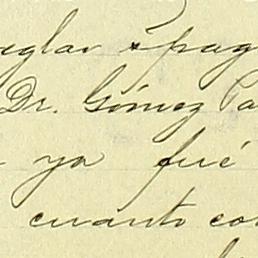 eglar y pag
Dr. Gómez Pa
ya fué
cuanto con